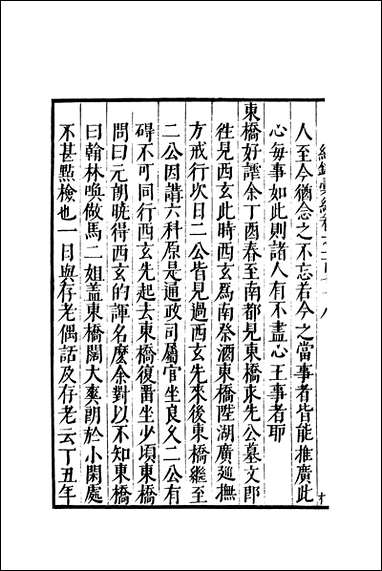 人至今猶念之不忘若今之當事者皆能推廣此
心每事如此則諸人有不盡心王事者耶
東橋好謔余丁酉春至南都見東橋求先公墓文即
徃見西玄此時西玄爲南祭酒東橋陞湖廣廵撫
方戒行次日二公皆見過西玄先來後東橋繼至
二公因講六科原是通政司屬官坐良久二公有
碍不可同行西玄先起去東橋復畱坐少頃東橋
問曰元朗曉得西玄的諢名麽余對以不知東橋
曰翰林喚做馬二姐蓋東橋闊大爽朗於小閑處
不甚點檢也一日與存老偶話及存老云丁丑年